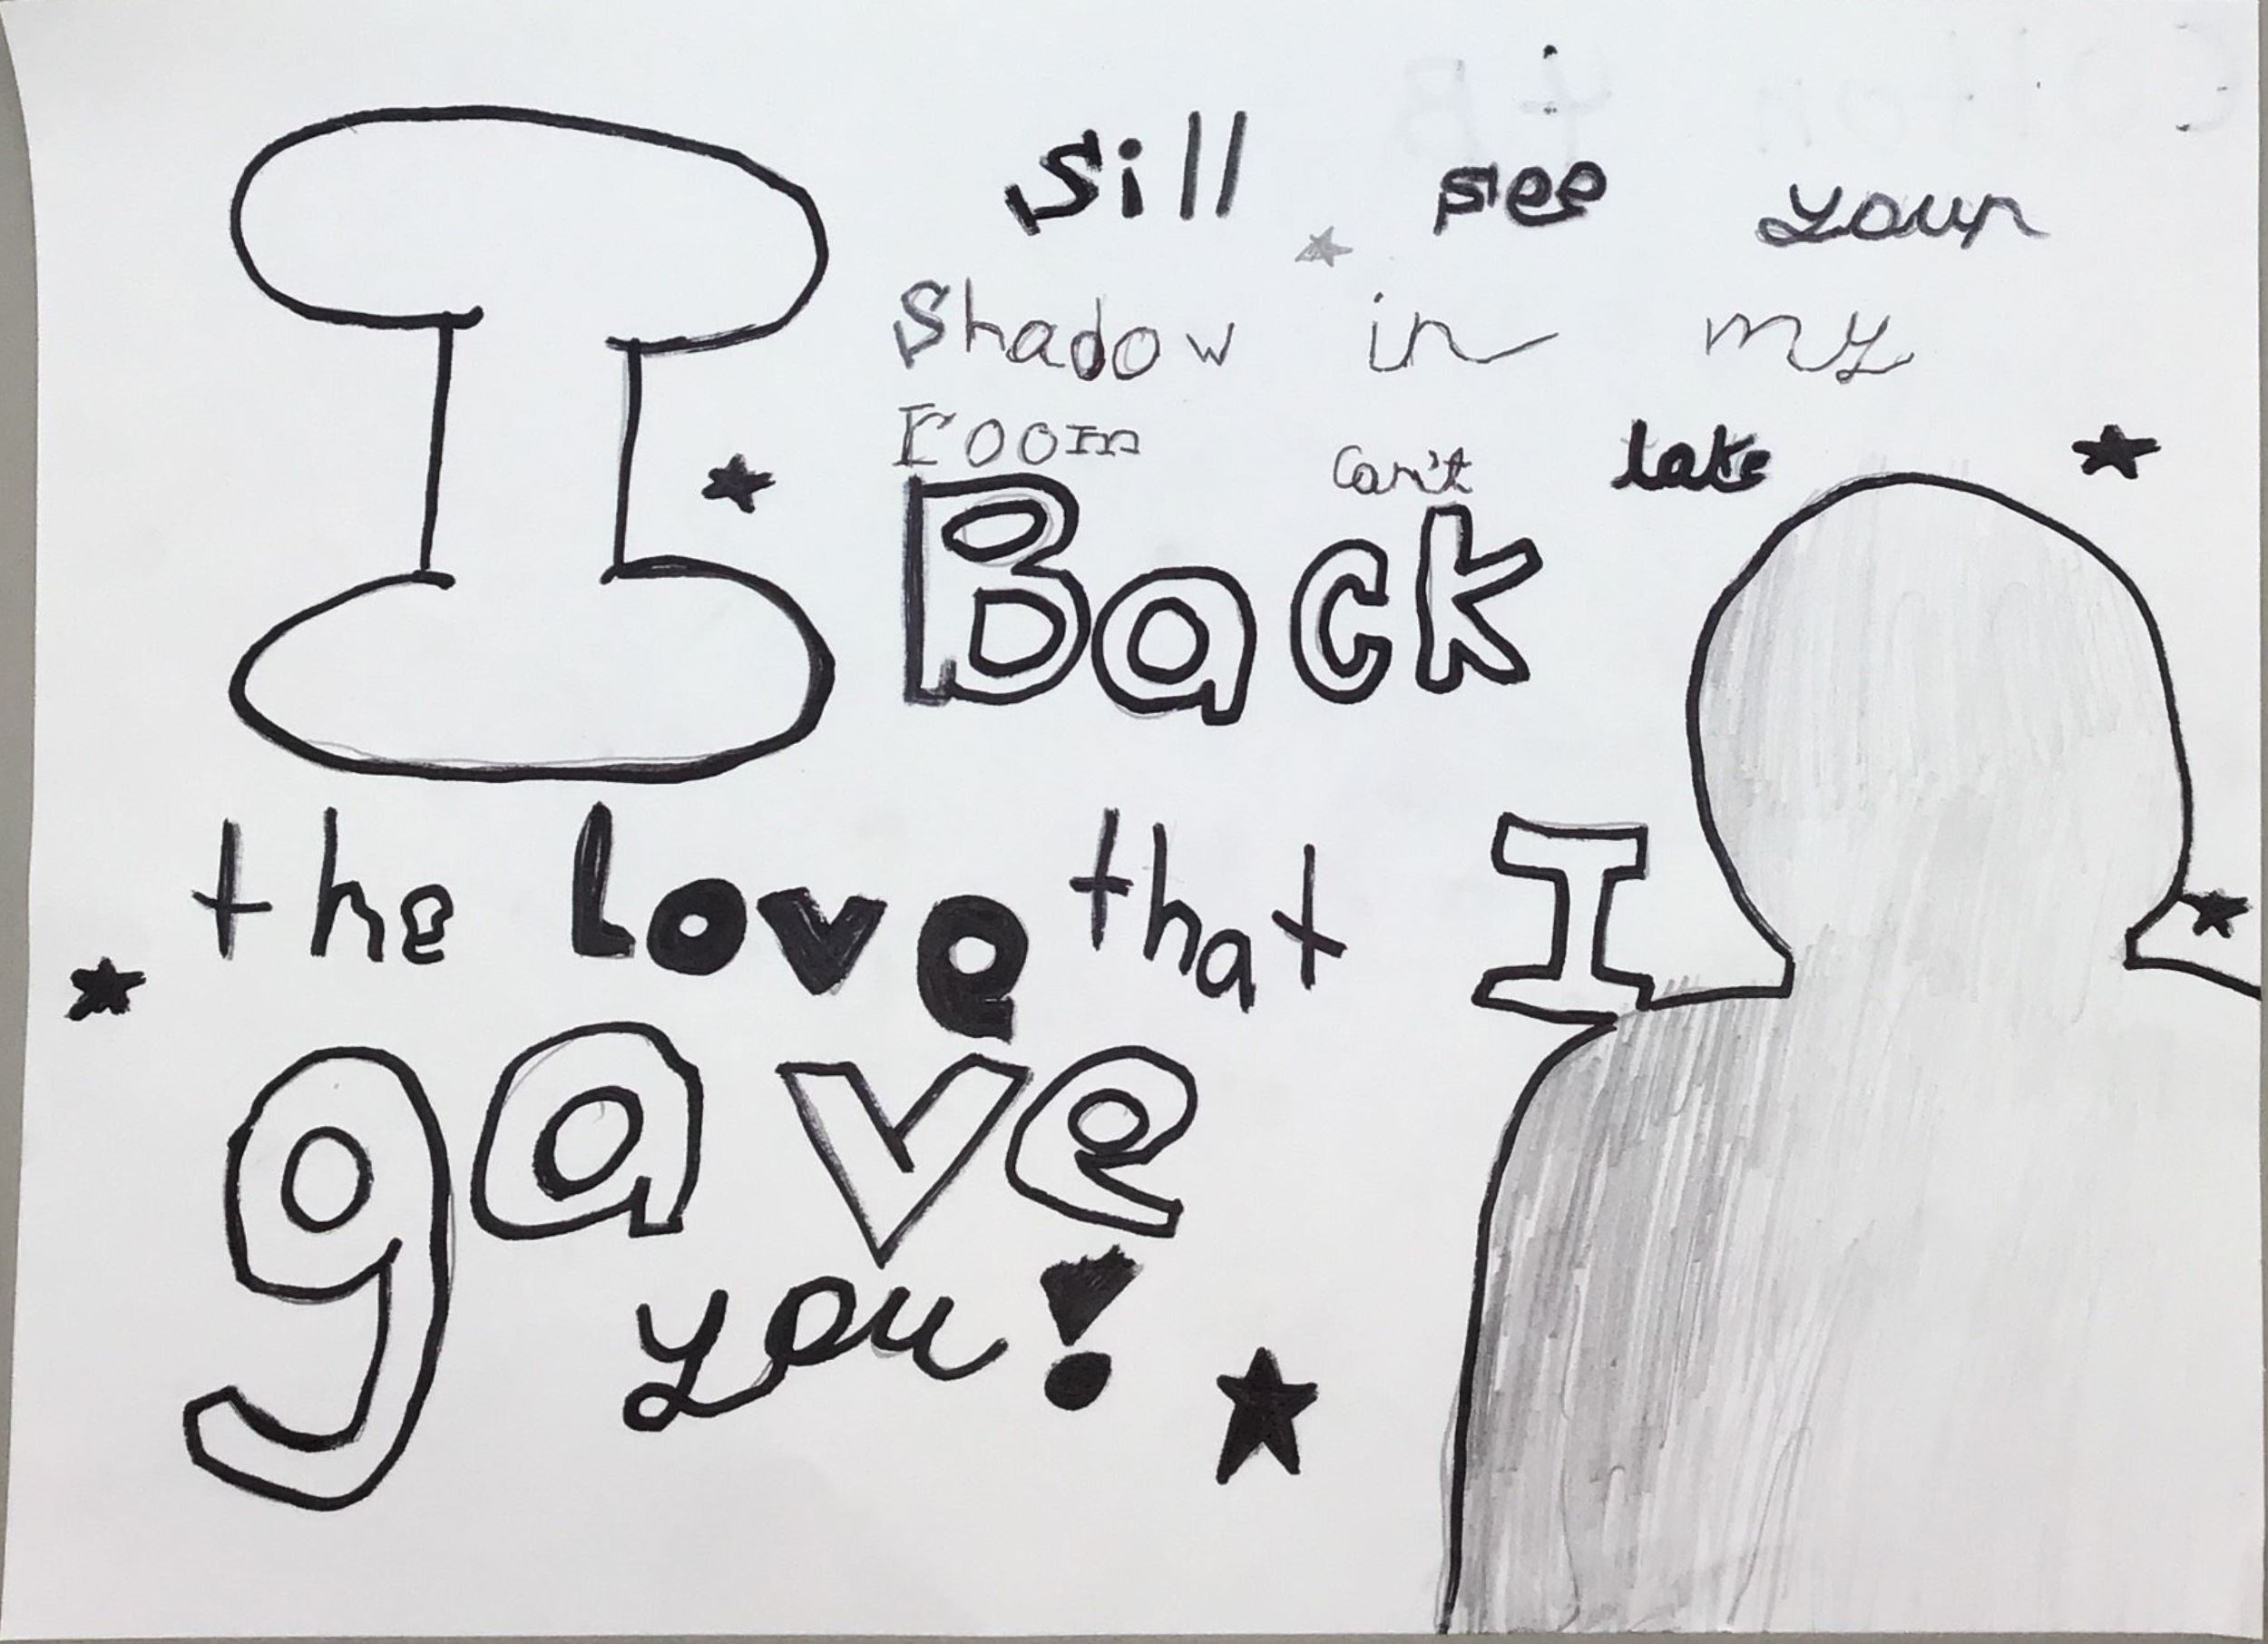 I sill see your
shadow in my
room can't take
Back
the love that I
gave
you!